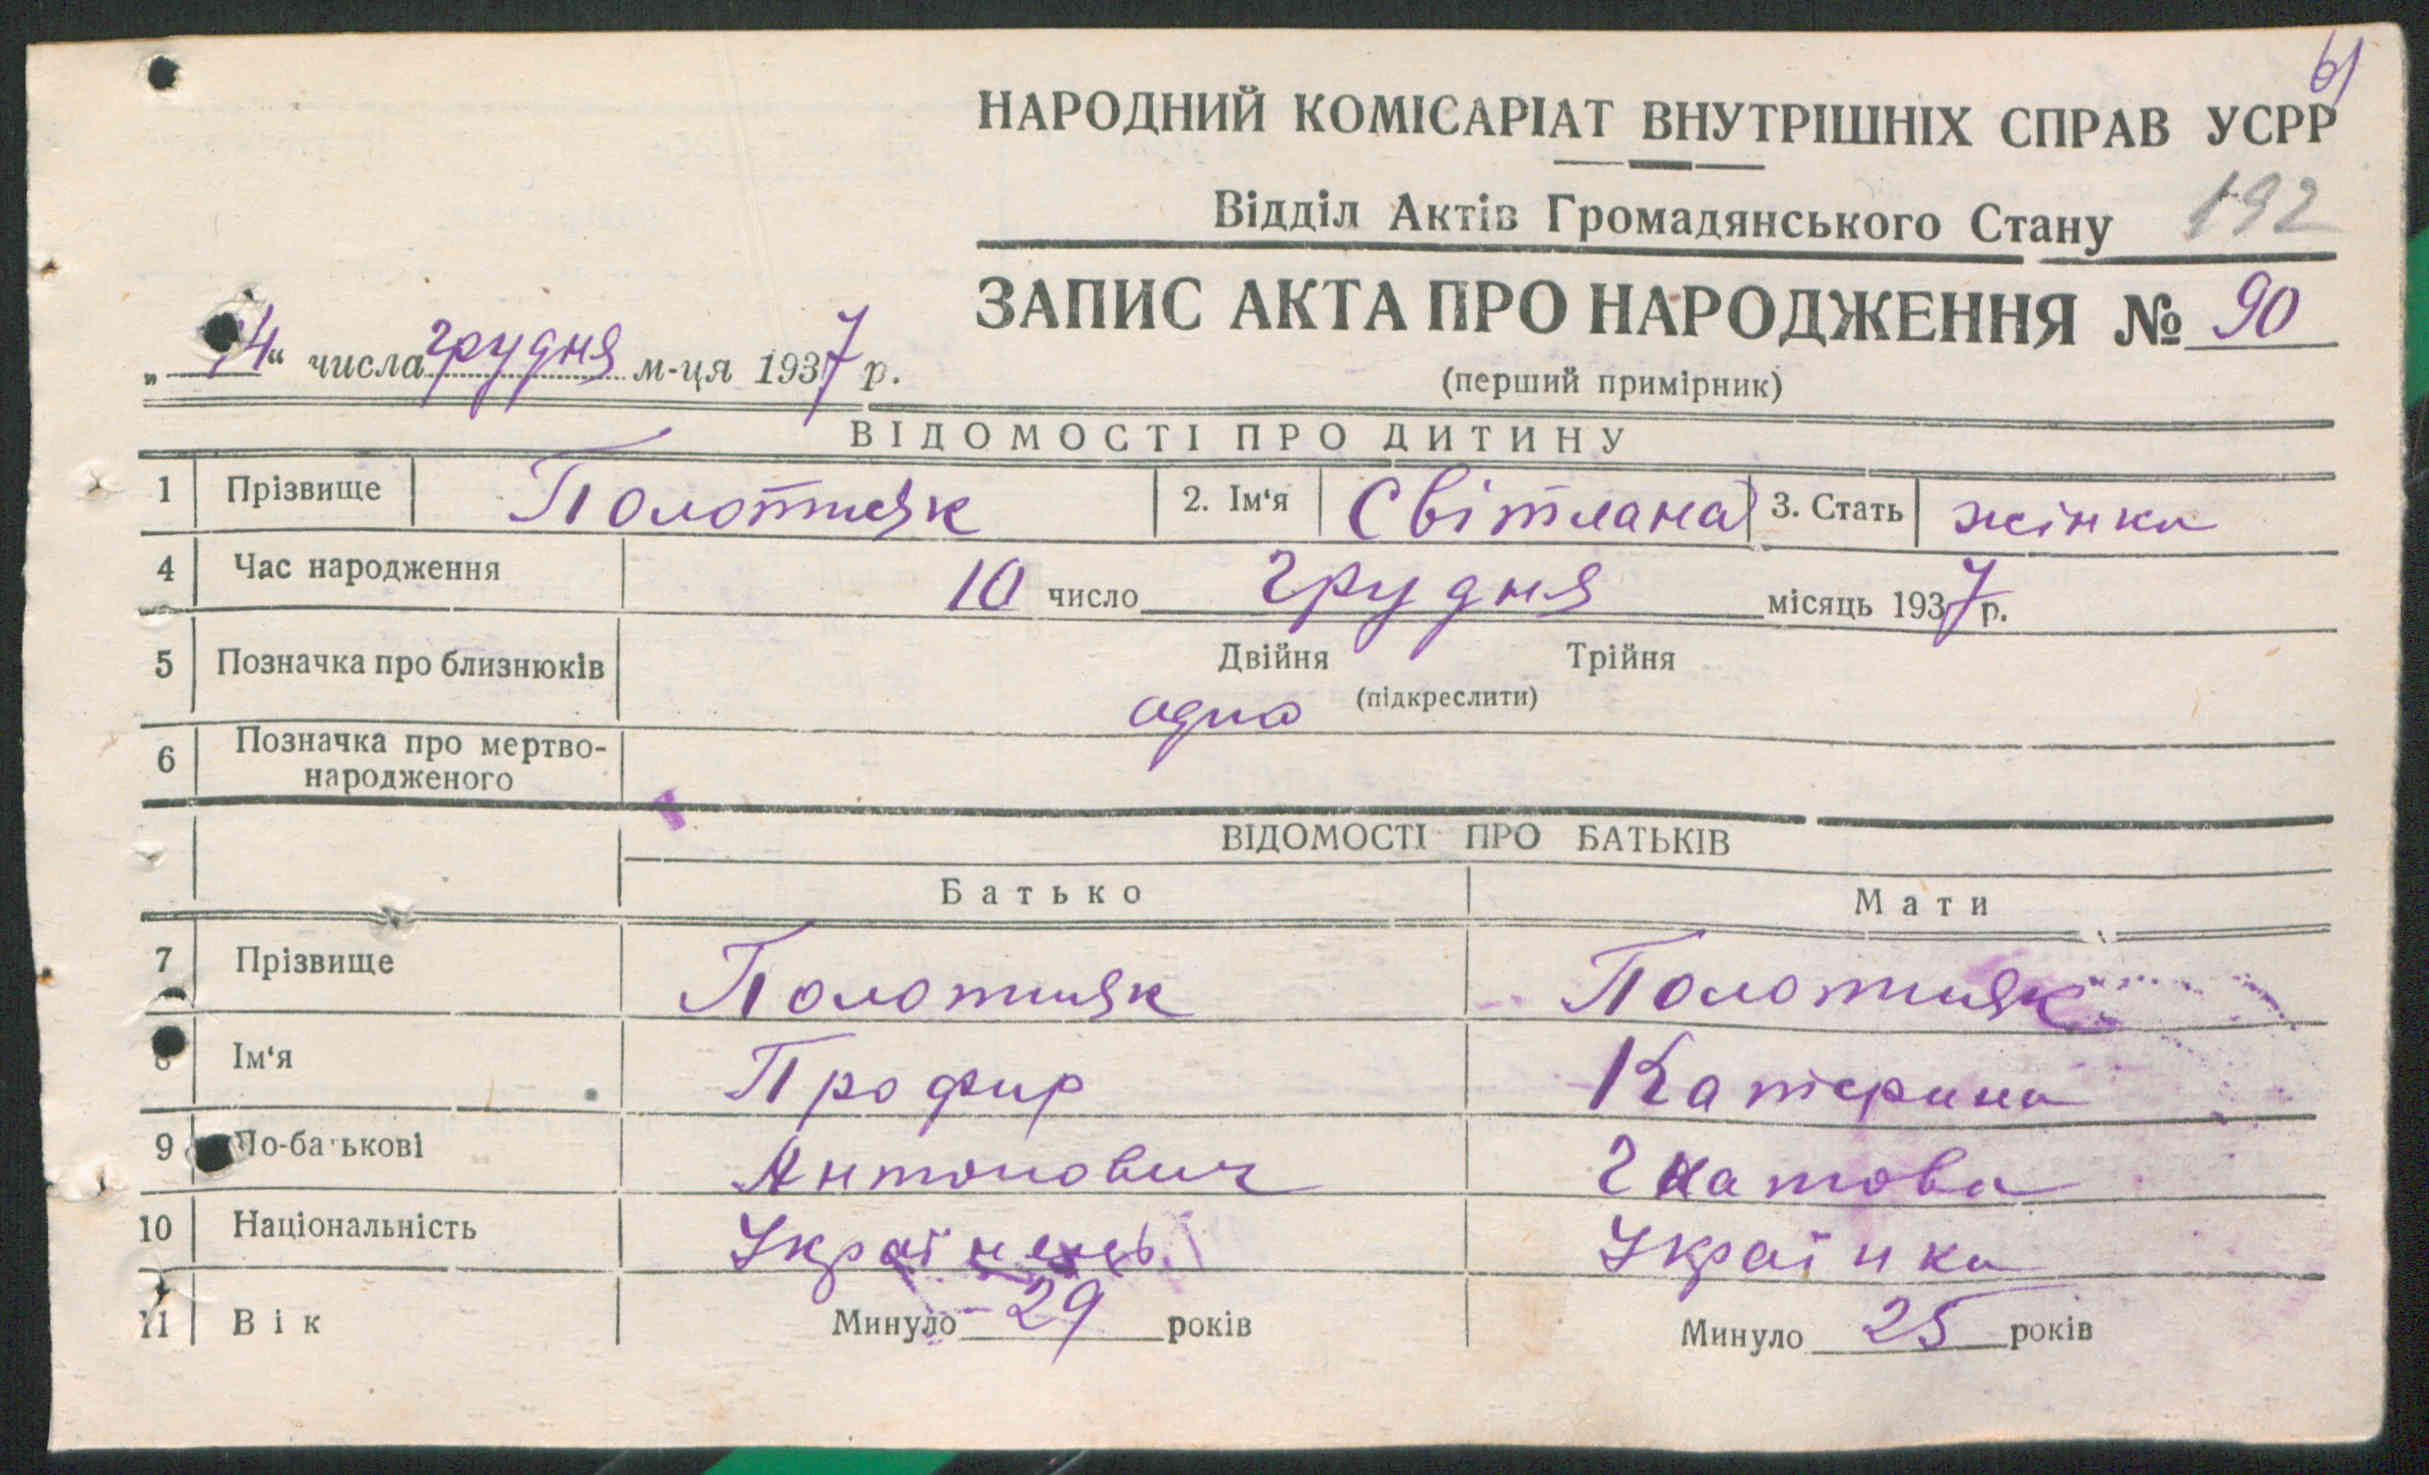 61
НАРОДНИЙ КОМІСАРІАТ ВНУТРІШНІХ СПРАВ УСРР
Відділ Актів Громадянського Стану 192
ЗАПИС АКТА ПРО НАРОДЖЕННЯ № 90
„14“ числа грудня м-ця 1937 р.
(перший примірник)
ВІДОМОСТІ ПРО ДИТИНУ
1 Прізвище Полотняк 2. Ім‘я Світлана 3. Стать жінка
4 Час народження 10 число грудня місяць 1937 р.
5 Позначка про близнюків Двійня Трійня
(підкреслити)
одна
6 Позначка про мертво-
народженого
ВІДОМОСТІ ПРО БАТЬКІВ
Батько Мати
7 Прізвище Полотняк Полотняк
8 Ім‘я Профир Катерина
9 По-батькові Антонович Гнатова
10 Національність Українець Українка
11 Вік Минуло 29 років Минуло 25 років